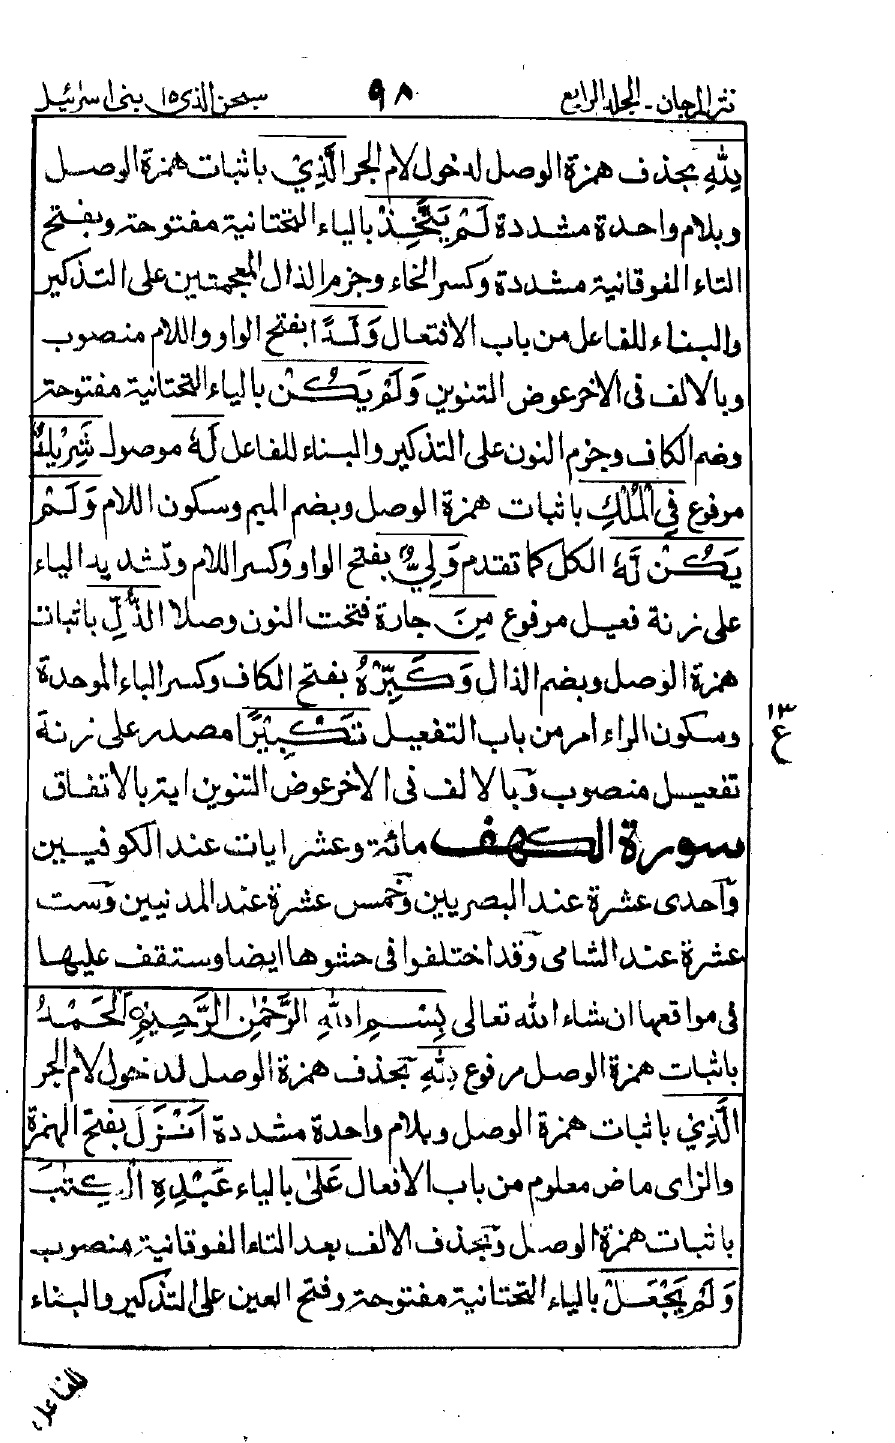 نثر المرجان ـ المجلد الرابع
٩٨
سبحن الذى ١٥ بنى اسرائيل
لِلّٰهِ بحذف همزة الوصل لدخول لام الجر الَّذِيْ باثبات همزة الوصل
وبلام واحدة مشددة لَمْ يَتَّخِذْ بالياء التحتانية مفتوحة وبفتح
التاء الفوقانية مشددة وكسر الخاء وجزم الذال المعجمتين على التذكير
والبناء للفاعل من باب الافتعال وَلَدًا بفتح الواو واللام منصوب
وبالالف فى الاخر عوض التنوين وَلَمْ يَكُنْ بالياء التحتانية مفتوحة
وضم الكاف وجزم النون على التذكير والبناء للفاعل لَهٗ موصول شَرِيْكٌ
مرفوع فِي الْمُلْكِ باثبات همزة الوصل وبضم الميم وسكون اللام وَلَمْ
يَكُنْ لَّهٗ الكل كما تقدم وَلِيٌّ بفتح الواو وكسر اللام وتشديد الياء
على زنة فعيل مرفوع مِنَ جارة فتحت النون وصلا الذُّلِّ باثبات
همزة الوصل وبضم الذال وَكَبِّرْهُ بفتح الكاف وكسر الباء الموحدة
وسكون الراء امر من باب التفعيل تَكْبِيْرًا مصدر على زنة
تفعيل منصوب وبالالف فى الاخر عوض التنوين اية بالاتفاق
سورة الكهف مائة وعشر ايات عند الكوفيين
واحدى عشرة عند البصريين وخمس عشرة عند المدنيين وست
عشرة عند الشامى وقد اختلفوا فى حشوها ايضا وستقف عليها
فى مواقعها ان شاء الله تعالى بِسْمِ اللّٰهِ الرَّحْمٰنِ الرَّحِيْمِ اَلْحَمْدُ
باثبات همزة الوصل مرفوع لِلّٰهِ بحذف همزة الوصل لدخول لام الجر
الَّذِيْ باثبات همزة الوصل وبلام واحدة مشددة اَنْزَلَ بفتح الهمزة
والزاى ماض معلوم من باب الافعال عَلٰى بالياء عَبْدِهِ الْكِتٰبَ
باثبات همزة الوصل وبحذف الالف بعد التاء الفوقانية منصوب
وَلَمْ يَجْعَلْ بالياء التحتانية مفتوحة وفتح العين على التذكير والبناء
١٣
ع
للفاعل